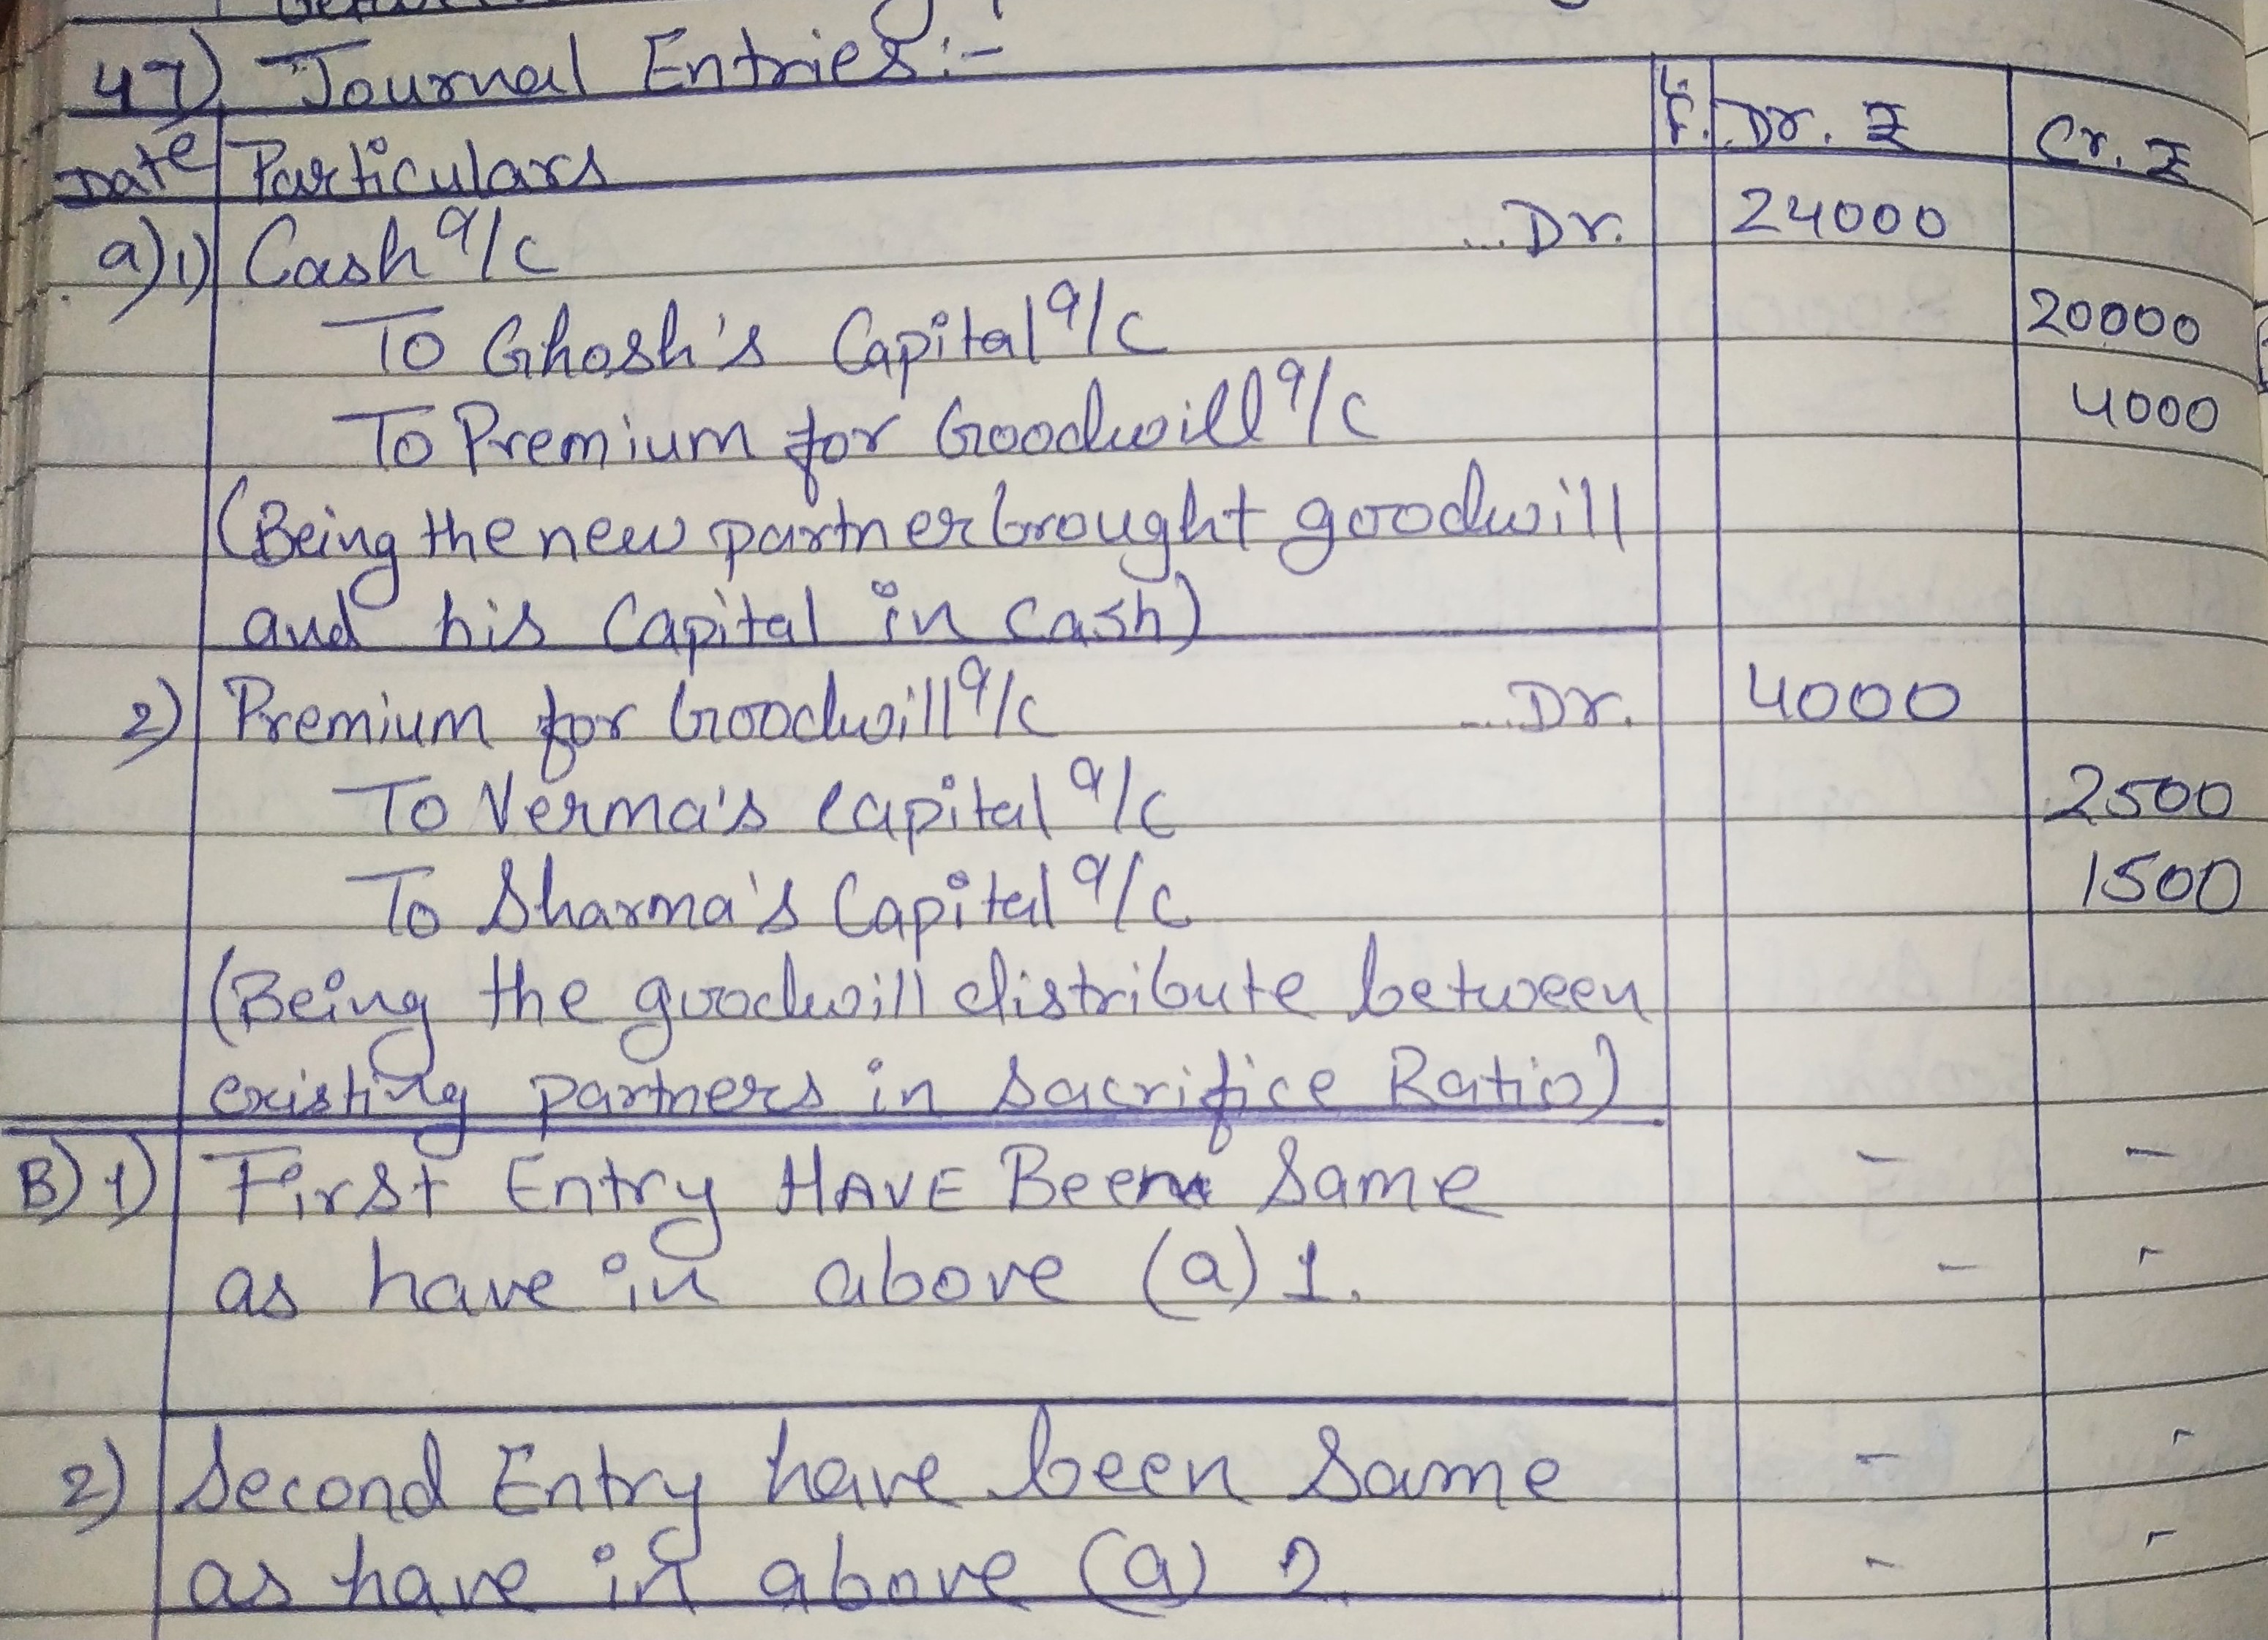 47) Journal Entries:-
Date Particulars L.F. Dr. ₹ Cr. ₹
a) 1) Cash a/c ...Dr. 24000
To Ghosh's Capital a/c 20000
To Premium for Goodwill a/c 4000
(Being the new partner brought goodwill
and his Capital in cash)
2) Premium for Goodwill a/c ...Dr. 4000
To Verma's Capital a/c 2500
To Sharma's Capital a/c 1500
(Being the goodwill distribute between
existing partners in sacrifice Ratio)
B) 1) First Entry HAVE Been Same - -
as have in above (a) 1. - -
2) Second Entry have been Same - -
as have in above (a) 2. - -